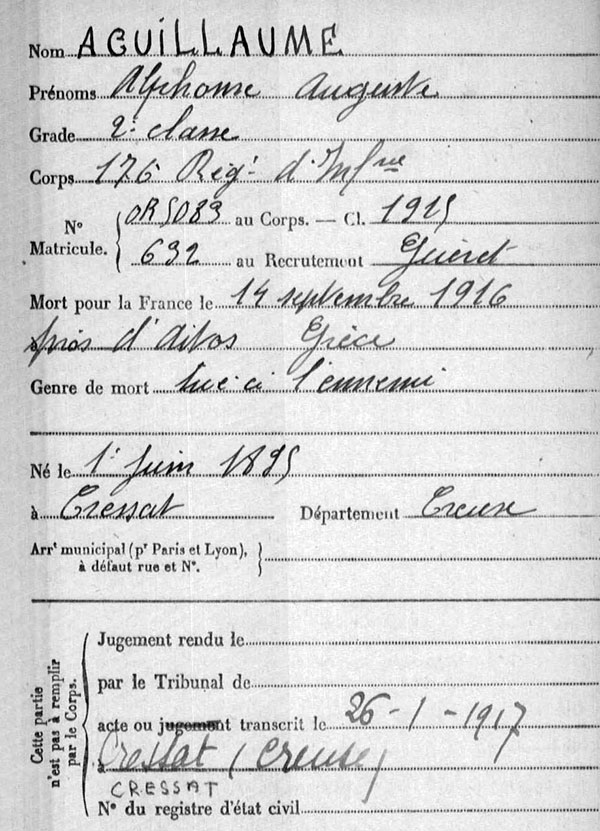 Nom AGUILLAUME
Prénoms Alphonse Auguste
Grade 2e classe
Corps 176 Régt d'Infrie
N° Matricule. { OR5083 au Corps. — Cl. 1915
632 au Recrutement Guéret
Mort pour la France le 14 septembre 1916
près d'Aitos Grèce
Genre de mort tué à l'ennemi
Né le 1er Juin 1895
à Cressat Département Creuse
Arrt municipal (pr Paris et Lyon), }
à défaut rue et N°.
Cette partie
n'est pas à remplir
par le Corps.
Jugement rendu le
par le Tribunal de
acte ou jugement transcrit le 26-1-1917
à Cressat (Creuse)
CRESSAT
N° du registre d'état civil